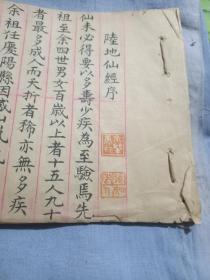 陸地仙經序
仙未必得要以多壽少疾為至驗焉先
祖至余四世男女百歲以上者十五人九十
者最多成人而夭折者稀亦無多疾
余祖任慶陽縣因感山